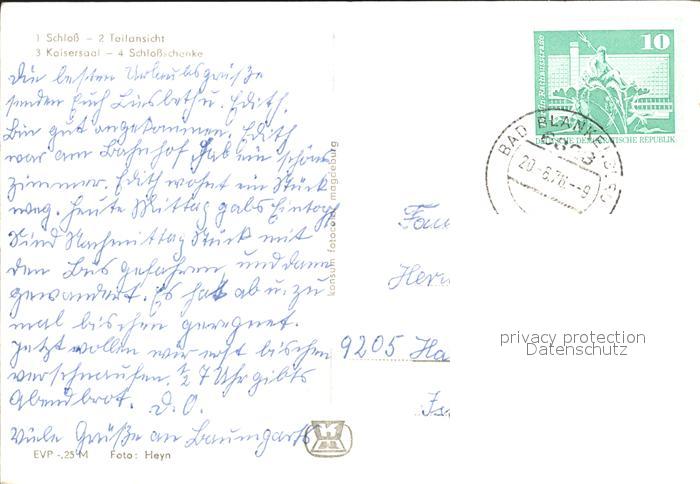 1 Schloß – 2 Teilansicht
3 Kaisersaal – 4 Schloßschenke
Die besten Urlaubsgrüße
senden Euch Liesbeth u. Edith.
Bin gut angekommen. Edith
war am Bahnhof, hab ein schönes
Zimmer. Edith wohnt ein Stück
weg. Heute Mittag gabs Eintopf
Sind Nachmittag Stück mit
den Bus gefahren und dann
gewandert. Es hat ab u. zu
mal bischen geregnet.
Jetzt wollen wir erst bischen
verschnaufen. ½ 7 Uhr gibts
Abendbrot. D. O.
Viele Grüße an Baumgarts
EVP -,25 M Foto: Heyn
konsum fotocolor magdeburg
10
DEUTSCHE DEMOKRATISCHE REPUBLIK
BAD BLANKENBURG
6823
20.-6.76.-9
Fam
Herm
9205 Ha
privacy protection
Datenschutz